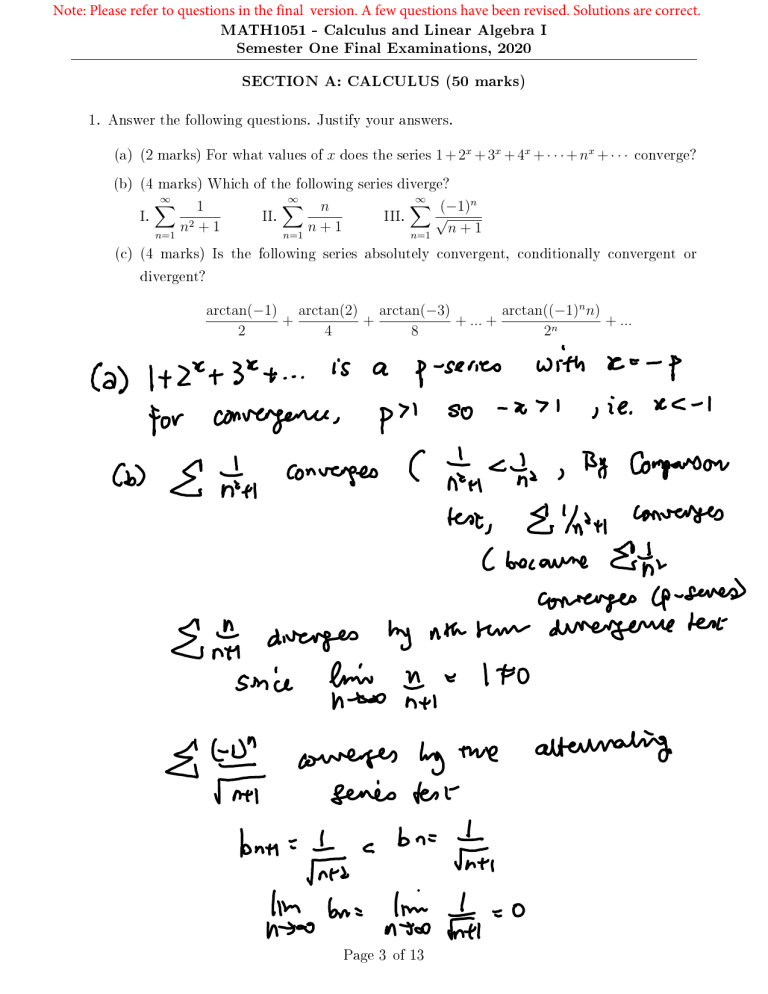 Note: Please refer to questions in the final version. A few questions have been revised. Solutions are correct.
MATH1051 - Calculus and Linear Algebra I
Semester One Final Examinations, 2020
SECTION A: CALCULUS (50 marks)
1. Answer the following questions. Justify your answers.
(a) (2 marks) For what values of x does the series 1+2^x+3^x+4^x+⋯+n^x+⋯ converge?
(b) (4 marks) Which of the following series diverge?
I. ∑_{n=1}^{∞} 1/(n^2+1) II. ∑_{n=1}^{∞} n/(n+1) III. ∑_{n=1}^{∞} (−1)^n/√(n+1)
(c) (4 marks) Is the following series absolutely convergent, conditionally convergent or
divergent?
arctan(−1)/2 + arctan(2)/4 + arctan(−3)/8 + ... + arctan((−1)^n n)/2^n + ...
(a) 1+2^x+3^x+... is a p-series with x=-p
for convergence, p>1 so -x>1, ie. x<-1
(b) ∑ 1/(n^2+1) converges ( 1/(n^2+1) < 1/n^2, By Comparison
test, ∑ 1/n^2+1 converges
(because ∑ 1/n^2
converges (p-series)
∑ n/(n+1) diverges by nth term divergence test
since lim_{n→∞} n/(n+1) = 1≠0
∑ (-1)^n/√(n+1) converges by the alternating
series test
b_{n+1} = 1/√(n+2) < b_n = 1/√(n+1)
lim_{n→∞} b_n = lim_{n→∞} 1/√(n+1) = 0
Page 3 of 13